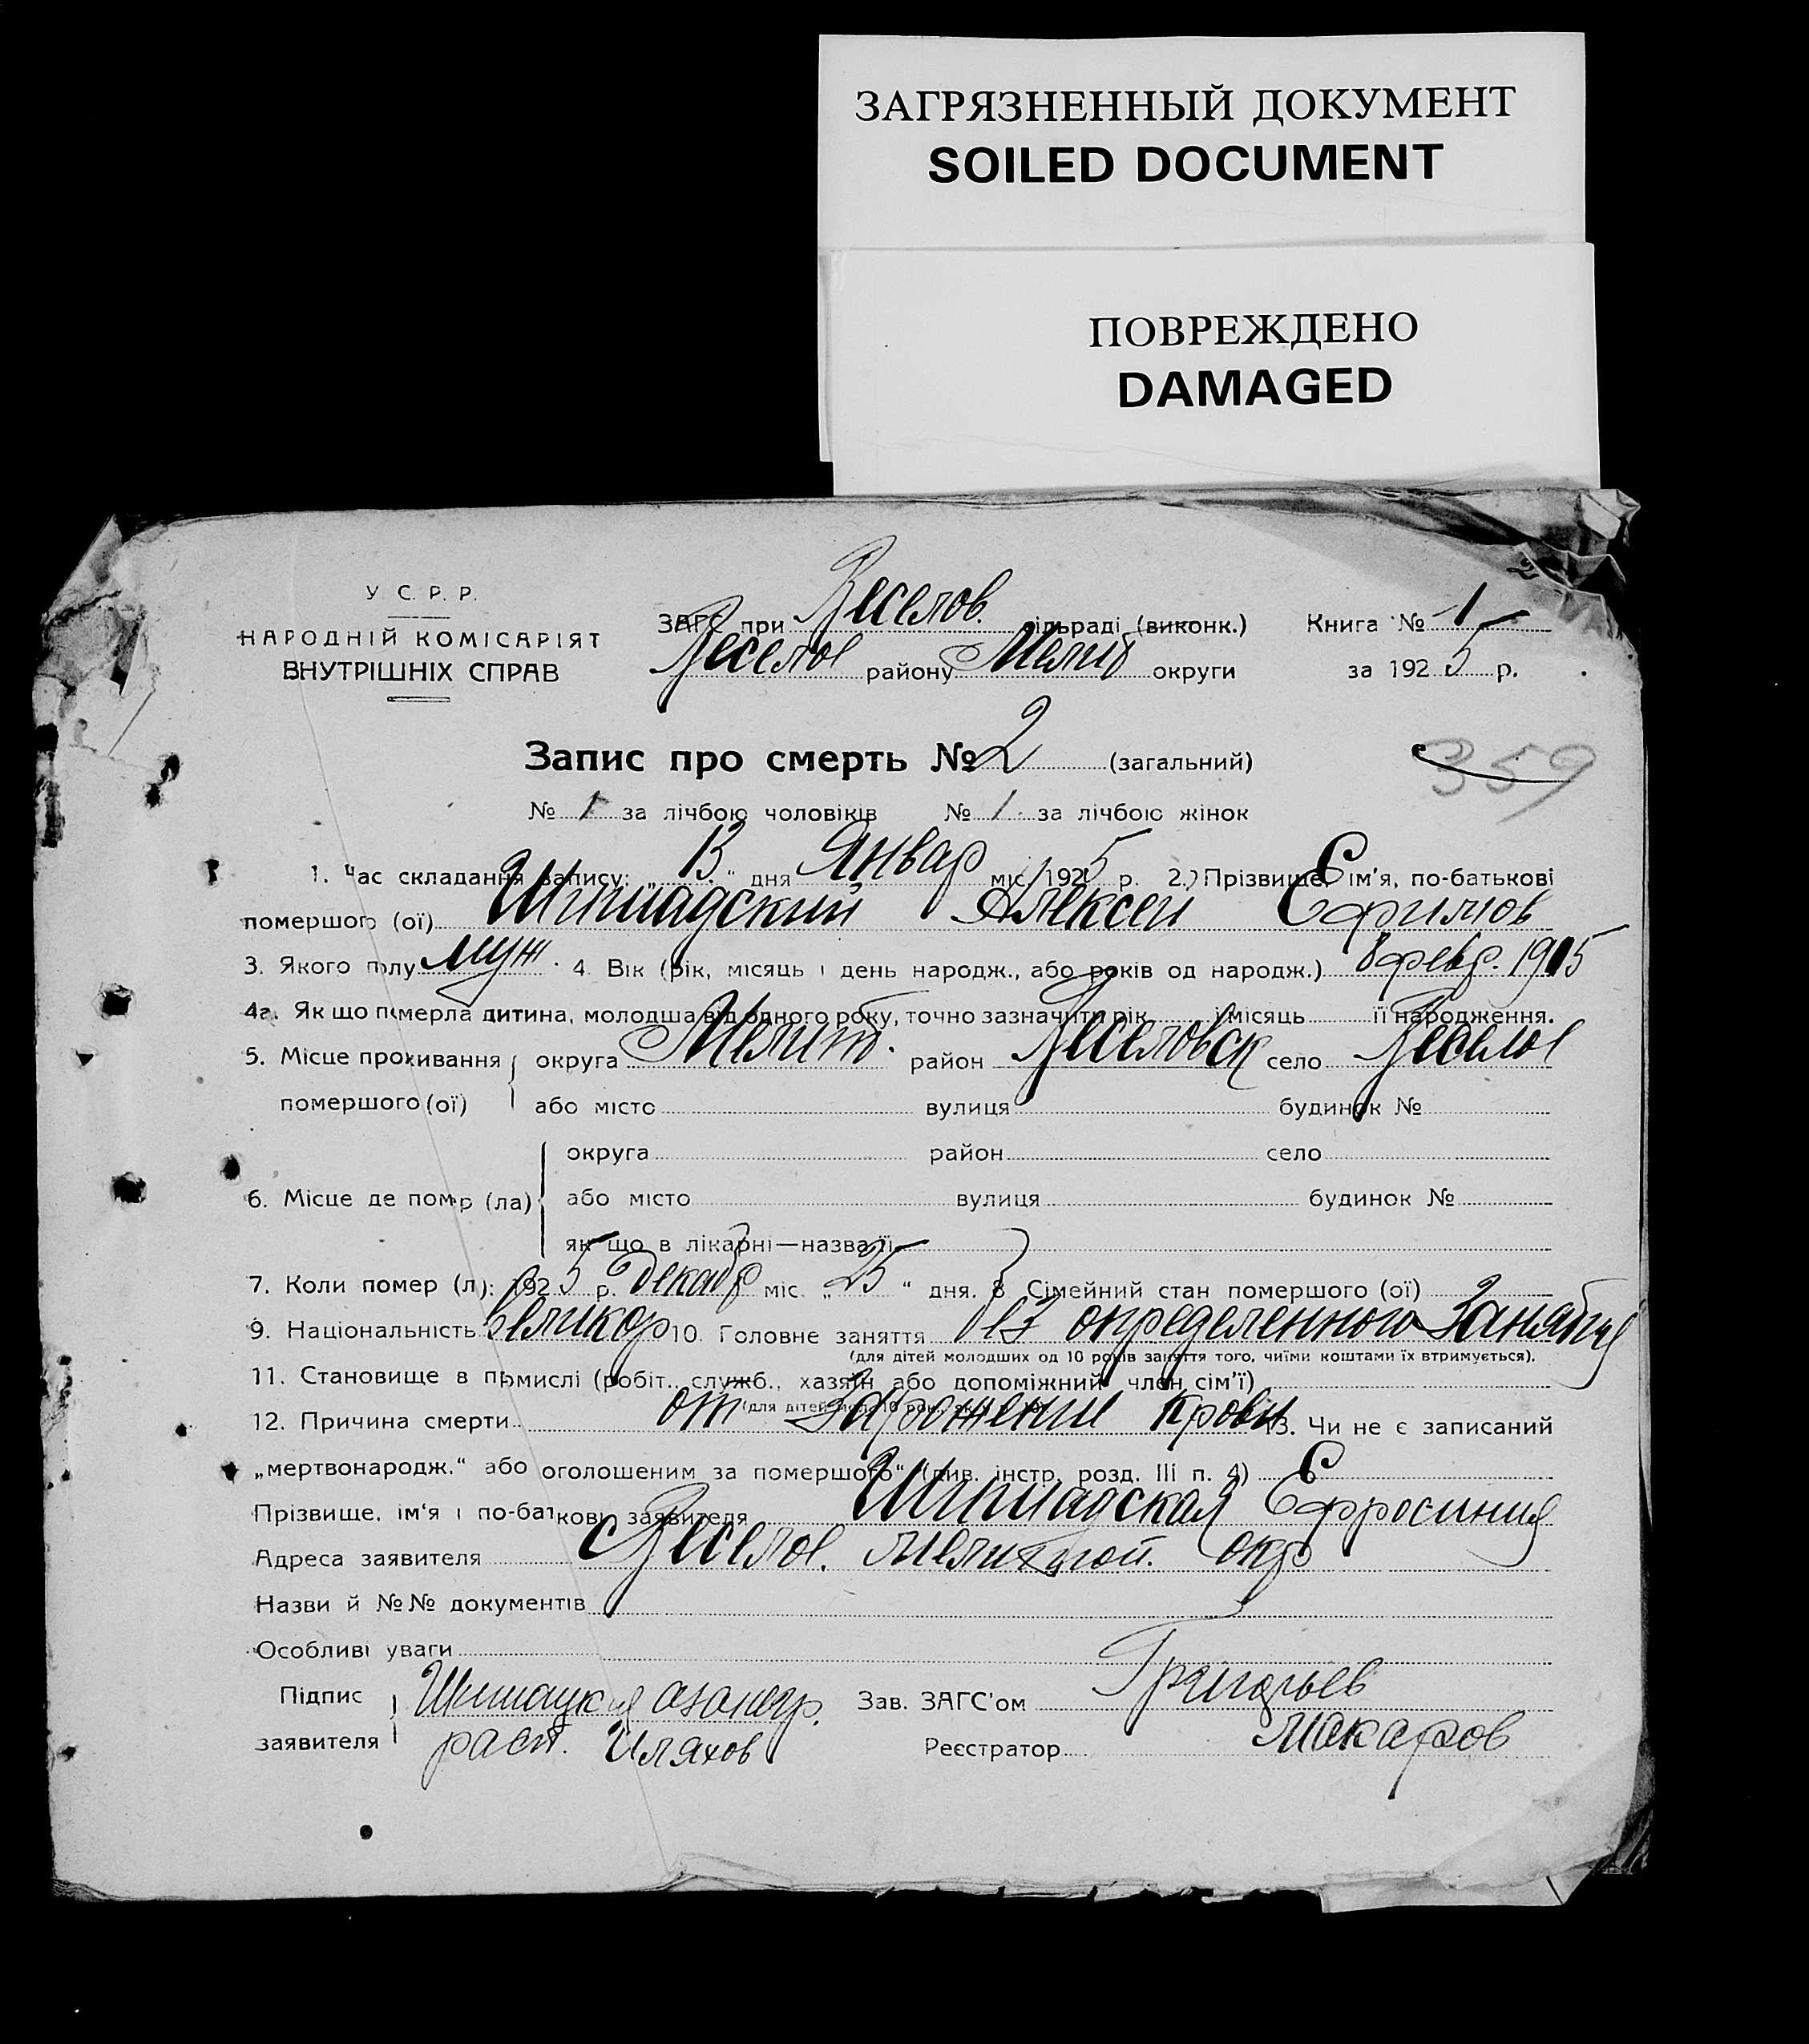 ЗАГРЯЗНЕННЫЙ ДОКУМЕНТ
SOILED DOCUMENT
ПОВРЕЖДЕНО
DAMAGED
У С. Р. Р.
НАРОДНІЙ КОМІСАРІЯТ
ВНУТРІШНІХ СПРАВ
ЗАГС при Веселов. сільраді (виконк.) Книга № 1
Веселое району Мелит округи за 1925 р.
Запис про смерть № 2 (загальний)
359
№ 1 за лічбою чоловіків № 1 за лічбою жінок
1. Час складання запису: „13“ дня Январ міс. 1925 р. 2. Прізвище, ім'я, по-батькові
помершого (ої) Алексей Ефимов
3. Якого полу муж. 4. Вік (рік, місяць і день народж., або років од народж.) 8 февр. 1905
4а. Як що померла дитина, молодша від одного року, точно зазначити рік і місяць її народження.
5. Місце проживання помершого (ої) округа Мелит. район Веселовск село Веселое
або місто вулиця будинок №
6. Місце де помер (ла) округа район село
або місто вулиця будинок №
як що в лікарні—назва її
7. Коли помер (л): 1925 р. Декабр міс. „25“ дня. 8. Сімейний стан помершого (ої)
9. Національність Великор 10. Головне заняття без определенного занятия
(для дітей молодших од 10 років заняття того, чиїми коштами їх втримується).
11. Становище в промислі (робіт., служб., хазяїн або допоміжний член сім'ї)
12. Причина смерти от Заражение крови 13. Чи не є записаний
„мертвонародж.“ або оголошеним за помершого“ (див. інстр. розд. III п. 4)
Прізвище, ім'я і по-батькові заявителя Ефросиния
Адреса заявителя с Веселое. Мелитопол. окр
Назви й №№ документів
Особливі уваги
Підпис заявителя Зав. ЗАГС'ом Григорьев
расп. Реєстратор Макаров